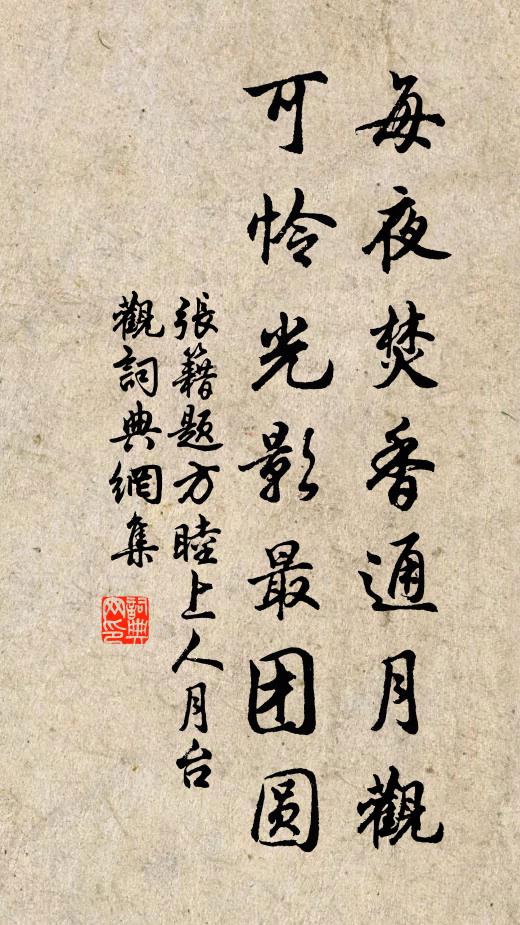 每夜焚香通月觀
可怜光影最团圆
張籍題方睦上人月台
觀詞典網集
詞典网印